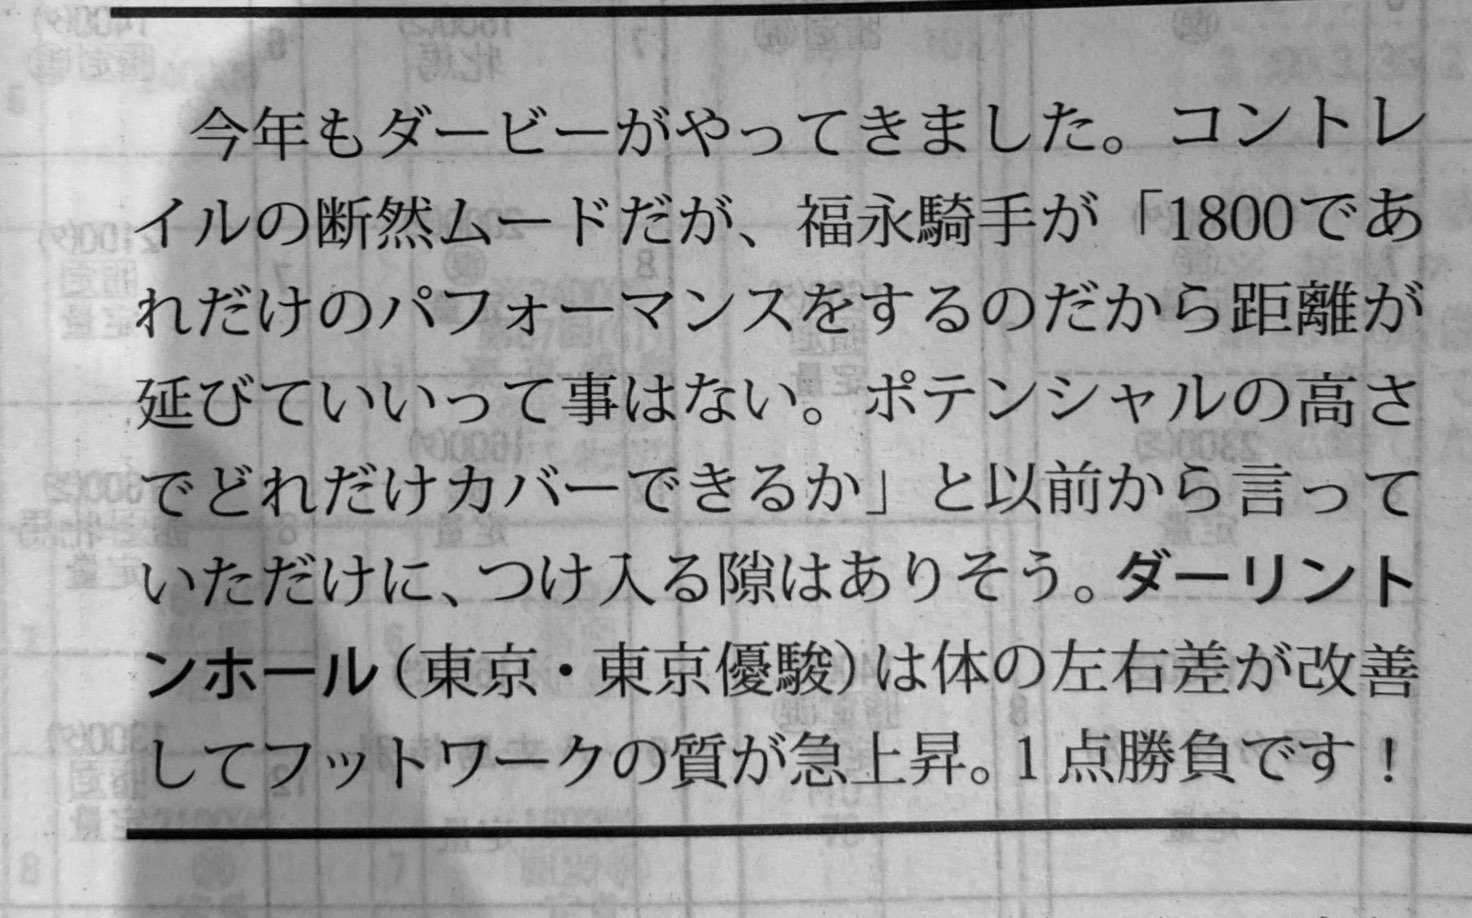 今年もダービーがやってきました。コントレ
イルの断然ムードだが、福永騎手が「1800であ
れだけのパフォーマンスをするのだから距離が
延びていいって事はない。ポテンシャルの高さ
でどれだけカバーできるか」と以前から言って
いただけに、つけ入る隙はありそう。ダーリント
ンホール（東京・東京優駿）は体の左右差が改善
してフットワークの質が急上昇。1点勝負です！